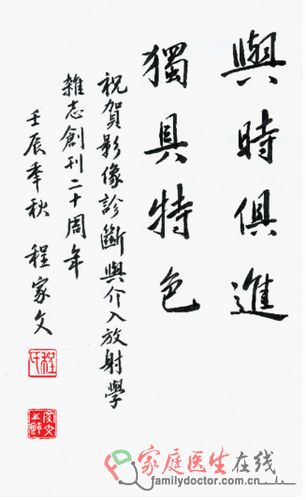 與時俱進
獨具特色
祝賀影像診斷與介入放射學
雜志創刊二十周年
壬辰季秋 程家文
家庭医生在线
familydoctor.com.cn